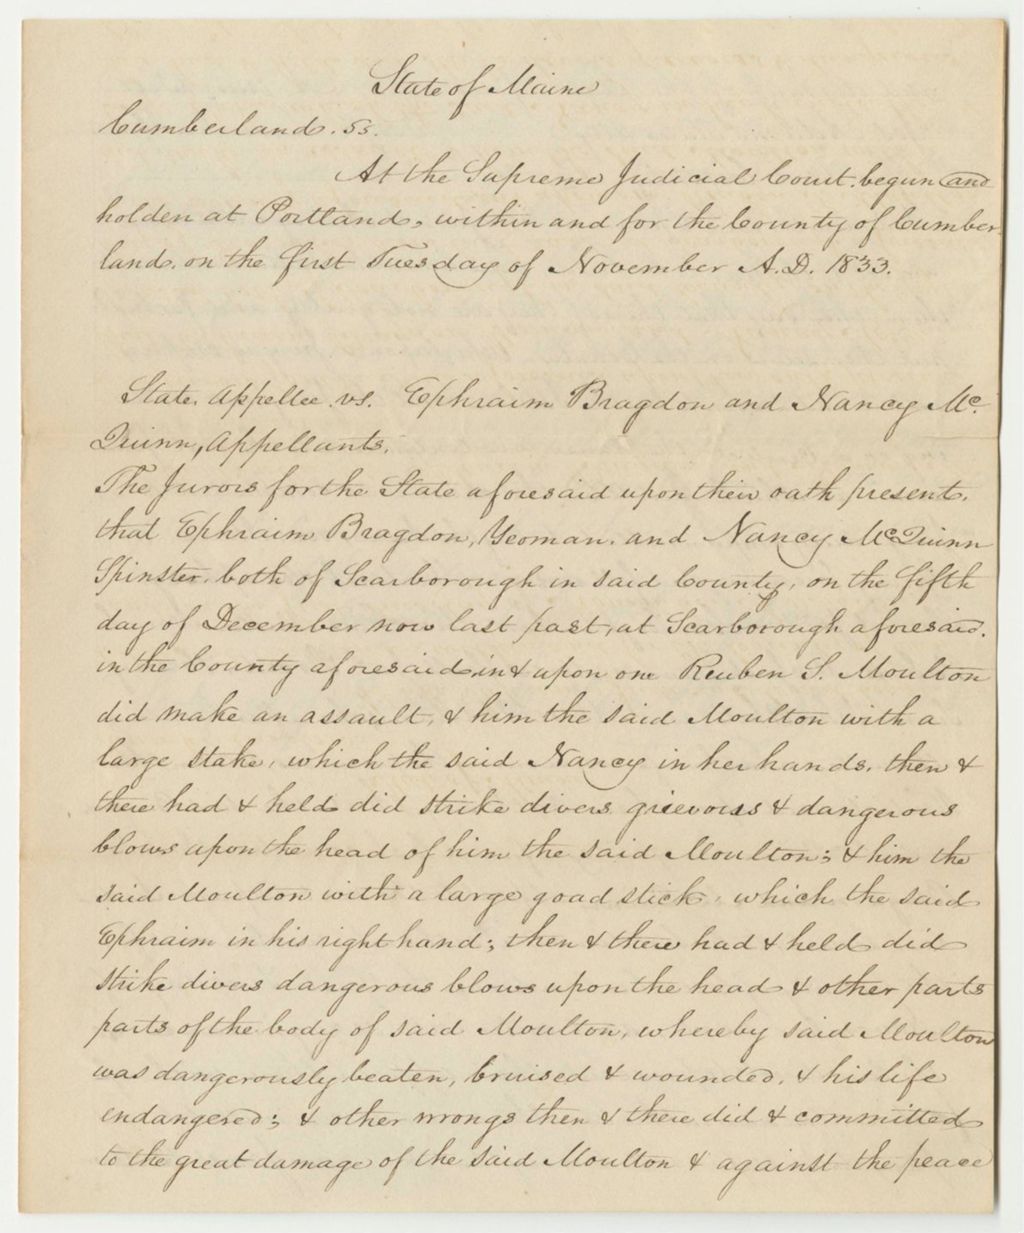 State of Maine
Cumberland. Ss.
At the Supreme Judicial Court. begun and
holden at Portland, within and for the County of Cumber-
land. on the first Tuesday of November A.D. 1833.
State. Appellee. vs. Ephraim Bragdon and Nancy Mc.
Quinn, Appellants.
The Jurors for the State aforesaid upon their oath present.
that Ephraim Bragdon, Yeoman. and Nancy McQuinn
Spinster. both of Scarborough in said County, on the fifth
day of December now last past, at Scarborough aforesaid.
in the County aforesaid, in & upon one Reuben S. Moulton
did make an assault, & him the said Moulton with a
large stake, which the said Nancy in her hands. then &
there had & held did strike divers grievous & dangerous
blows upon the head of him the said Moulton; & him the
said Moulton with a large goad stick, which the said
Ephraim in his right hand; then & there had & held did
strike divers dangerous blows upon the head & other parts
parts of the body of said Moulton, whereby said Moulton
was dangerously beaten, bruised & wounded, & his life
endangered; & other wrongs then & there did & committed
to the great damage of the said Moulton & against the peace